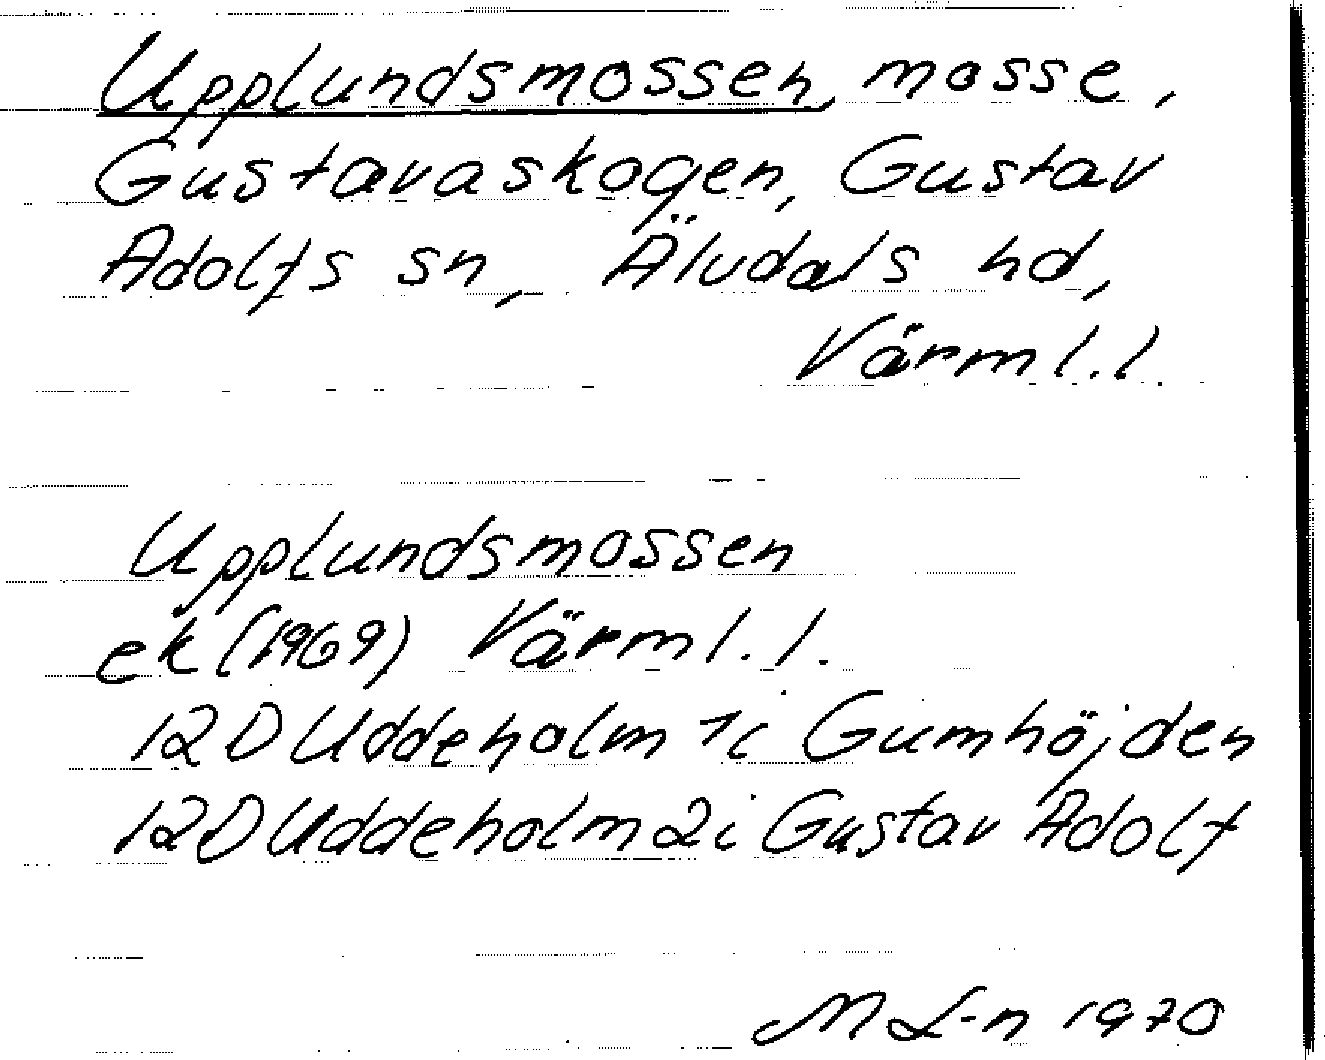 Upplundsmossen, mosse,
Gustavaskogen, Gustav
Adolfs sn, Älvdals hd,
Värml. l.
Upplundsmossen
ek (1969) Värml. l.
12D Uddeholm 1i Gumhöjden
12D Uddeholm 2i Gustav Adolf
M L-n 1970